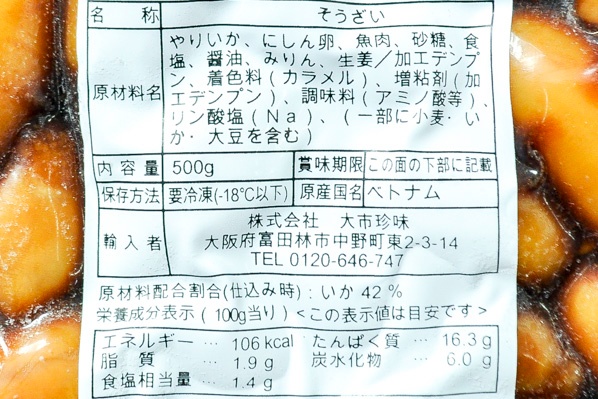 名 称 そうざい
原材料名 やりいか、にしん卵、魚肉、砂糖、食
塩、醤油、みりん、生姜／加工デンプ
ン、着色料(カラメル)、増粘剤(加
工デンプン)、調味料(アミノ酸等)、
リン酸塩(Na)、(一部に小麦・い
か・大豆を含む)
内容量 500g 賞味期限 この面の下部に記載
保存方法 要冷凍(-18℃以下) 原産国名 ベトナム
輸入者 株式会社 大市珍味
大阪府富田林市中野町東2-3-14
TEL 0120-646-747
原材料配合割合(仕込み時)：いか 42％
栄養成分表示(100g当り)<この表示値は目安です>
エネルギー … 106 kcal たんぱく質 … 16.3 g
脂質 … 1.9 g 炭水化物 … 6.0 g
食塩相当量 … 1.4 g